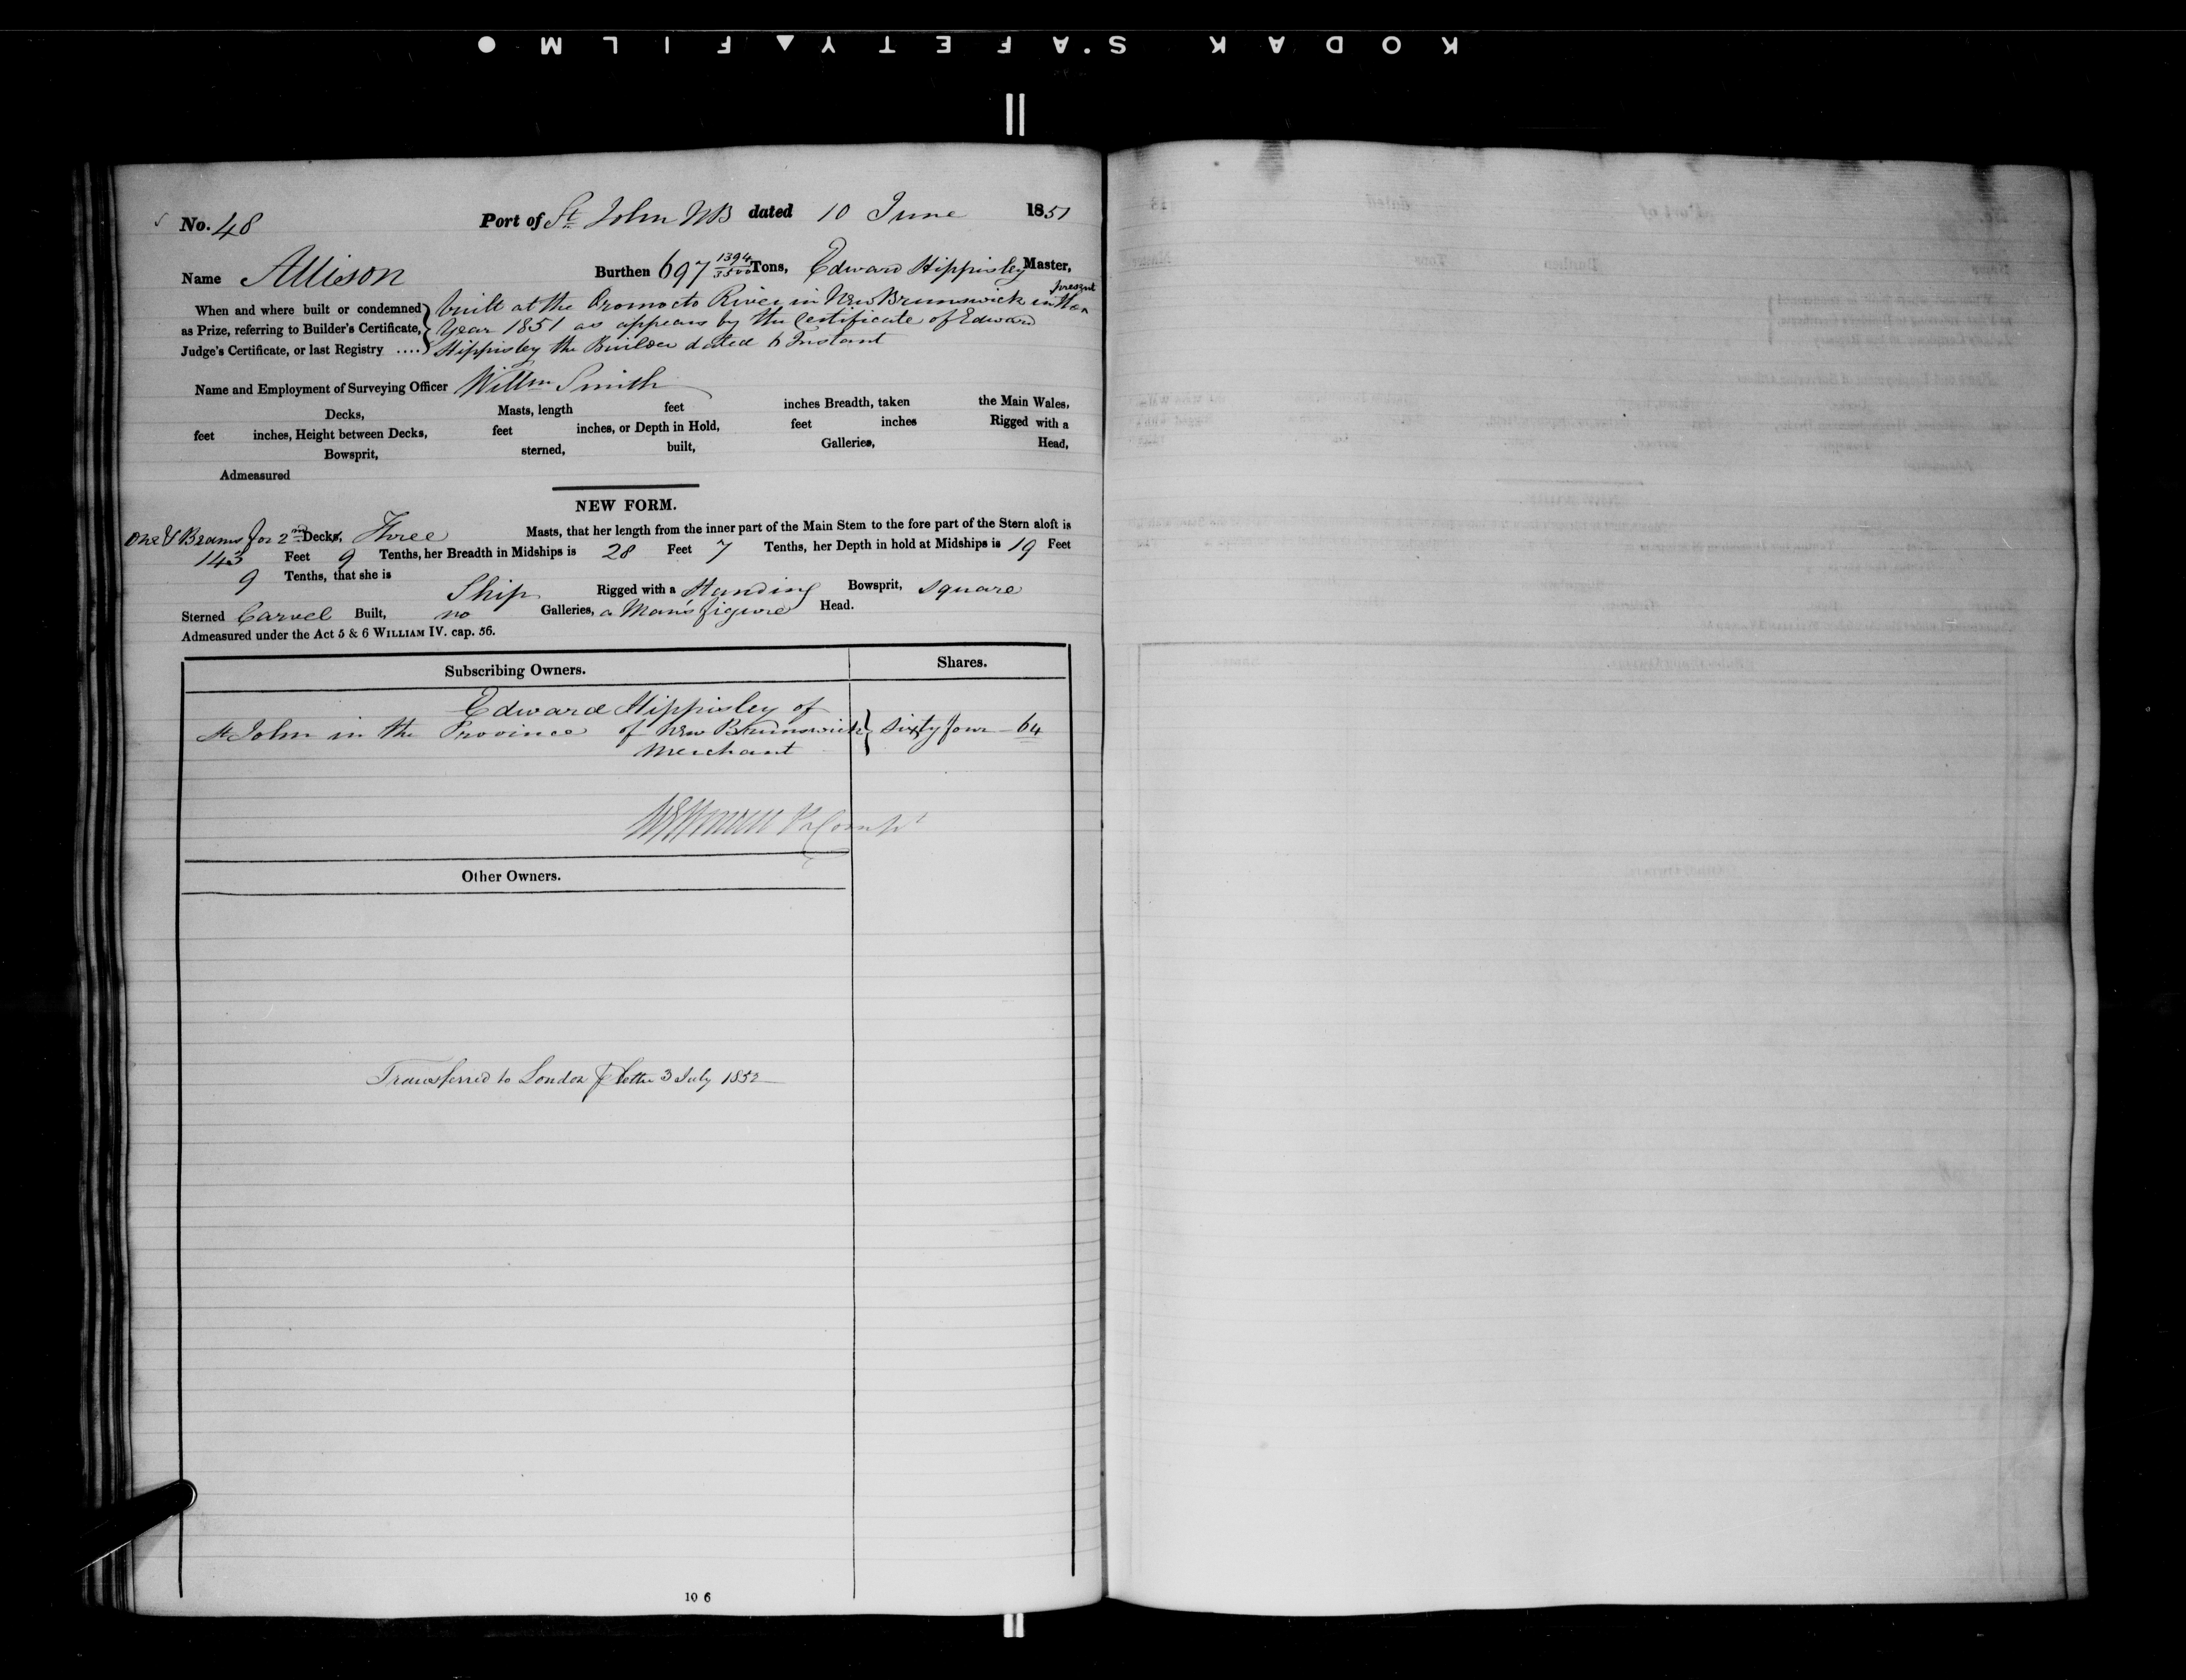 KODAK SAFETY FILM
No. 48 Port of St. John NB dated 10 June 1851
Name Allison Burthen 697 1394/3500 Tons, Edward Hippisley Master,
When and where built or condemned as Prize, referring to Builder's Certificate, Judge's Certificate, or last Registry ....
built at the Oromocto River in New Brunswick in the present
Year 1851 as appears by the Certificate of Edward
Hippisley the Builder dated 6 Instant
Name and Employment of Surveying Officer Willm Smith
Decks, Masts, length feet inches Breadth, taken the Main Wales,
feet inches, Height between Decks, feet inches, or Depth in Hold, feet inches Rigged with a
Bowsprit, sterned, built, Galleries, Head,
Admeasured
NEW FORM.
One & Beams for 2nd Decks, Three Masts, that her length from the inner part of the Main Stem to the fore part of the Stern aloft is
143 Feet 9 Tenths, her Breadth in Midships is 28 Feet 7 Tenths, her Depth in hold at Midships is 19 Feet
9 Tenths, that she is Ship Rigged with a Standing Bowsprit, square
Sterned Carvel Built, no Galleries, a Man's figure Head.
Admeasured under the Act 5 & 6 WILLIAM IV. cap. 56.
Subscribing Owners. Shares.
Edward Hippisley of
St John in the Province of New Brunswick } Sixty four - 64
Merchant
Other Owners.
Transferred to London letter 3 July 1852
10 6